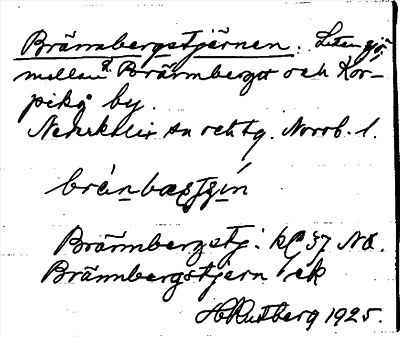 Brännbergstjärnen. Liten sjö
mellan Brännberget och Kor-
pikå by.
Nederkalix sn och tg. Norrb. l.
brän̲bæṣtʃä̲n
Brännbergstj: kC 37 NÖ.
Brännbergstjern ek
H Rutberg 1925.